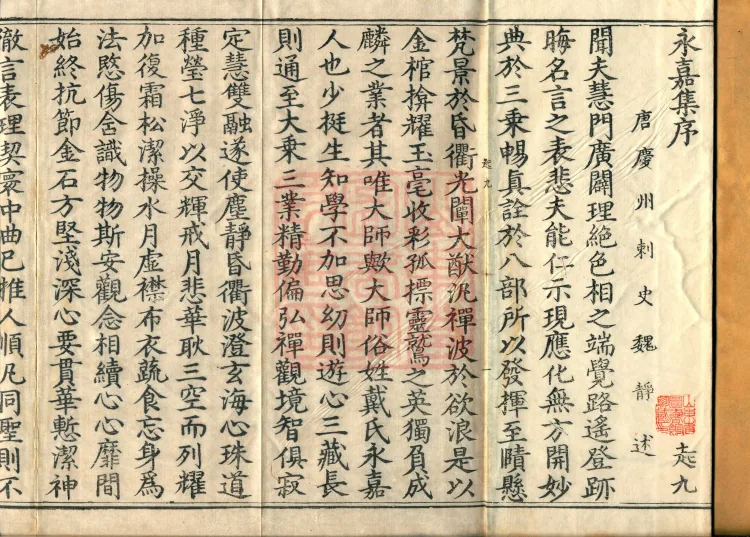 永嘉集序
起九
唐慶州刺史魏靜述
聞夫慧門廣闢理絕色相之端覺路遙登跡
晦名言之表悲夫能仁示現應化無方開妙
典於三乘暢眞詮於八部所以發揮至賾懸
梵景於昏衢光闡大猷泛禪波於欲浪是以
起九
金棺揜耀玉毫收彩孤標靈鷲之英獨負成
麟之業者其唯大師歟大師俗姓戴氏永嘉
人也少挺生知學不加思幼則遊心三藏長
則通至大乘三業精勤偏弘禪觀境智俱寂
定慧雙融遂使塵靜昏衢波澄玄海心珠道
種瑩七淨以交輝戒月悲華耿三空而列耀
加復霜松潔操水月虛襟布衣蔬食忘身爲
法愍傷含識物物斯安觀念相續心心靡間
始終抗節金石方堅淺深心要貫華慙潔神
徹言表理契寰中曲己推人順凡同聖則不